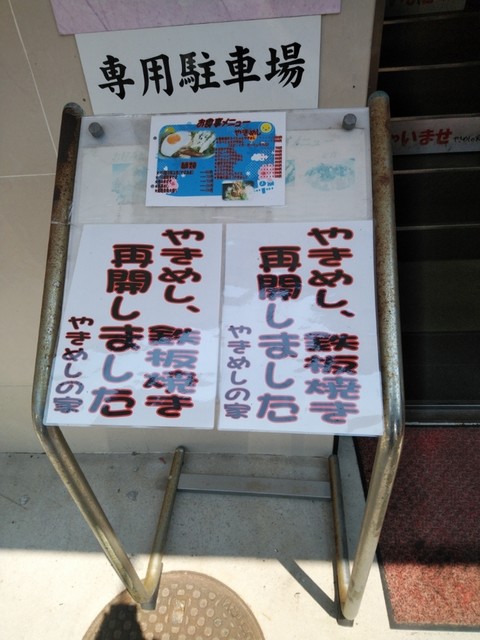 専用駐車場
お食事メニュー
やきめし
麺類
やいませ
やきめし、鉄板焼き
再開しました
やきめしの家
やきめし、鉄板焼き
再開しました
やきめしの家